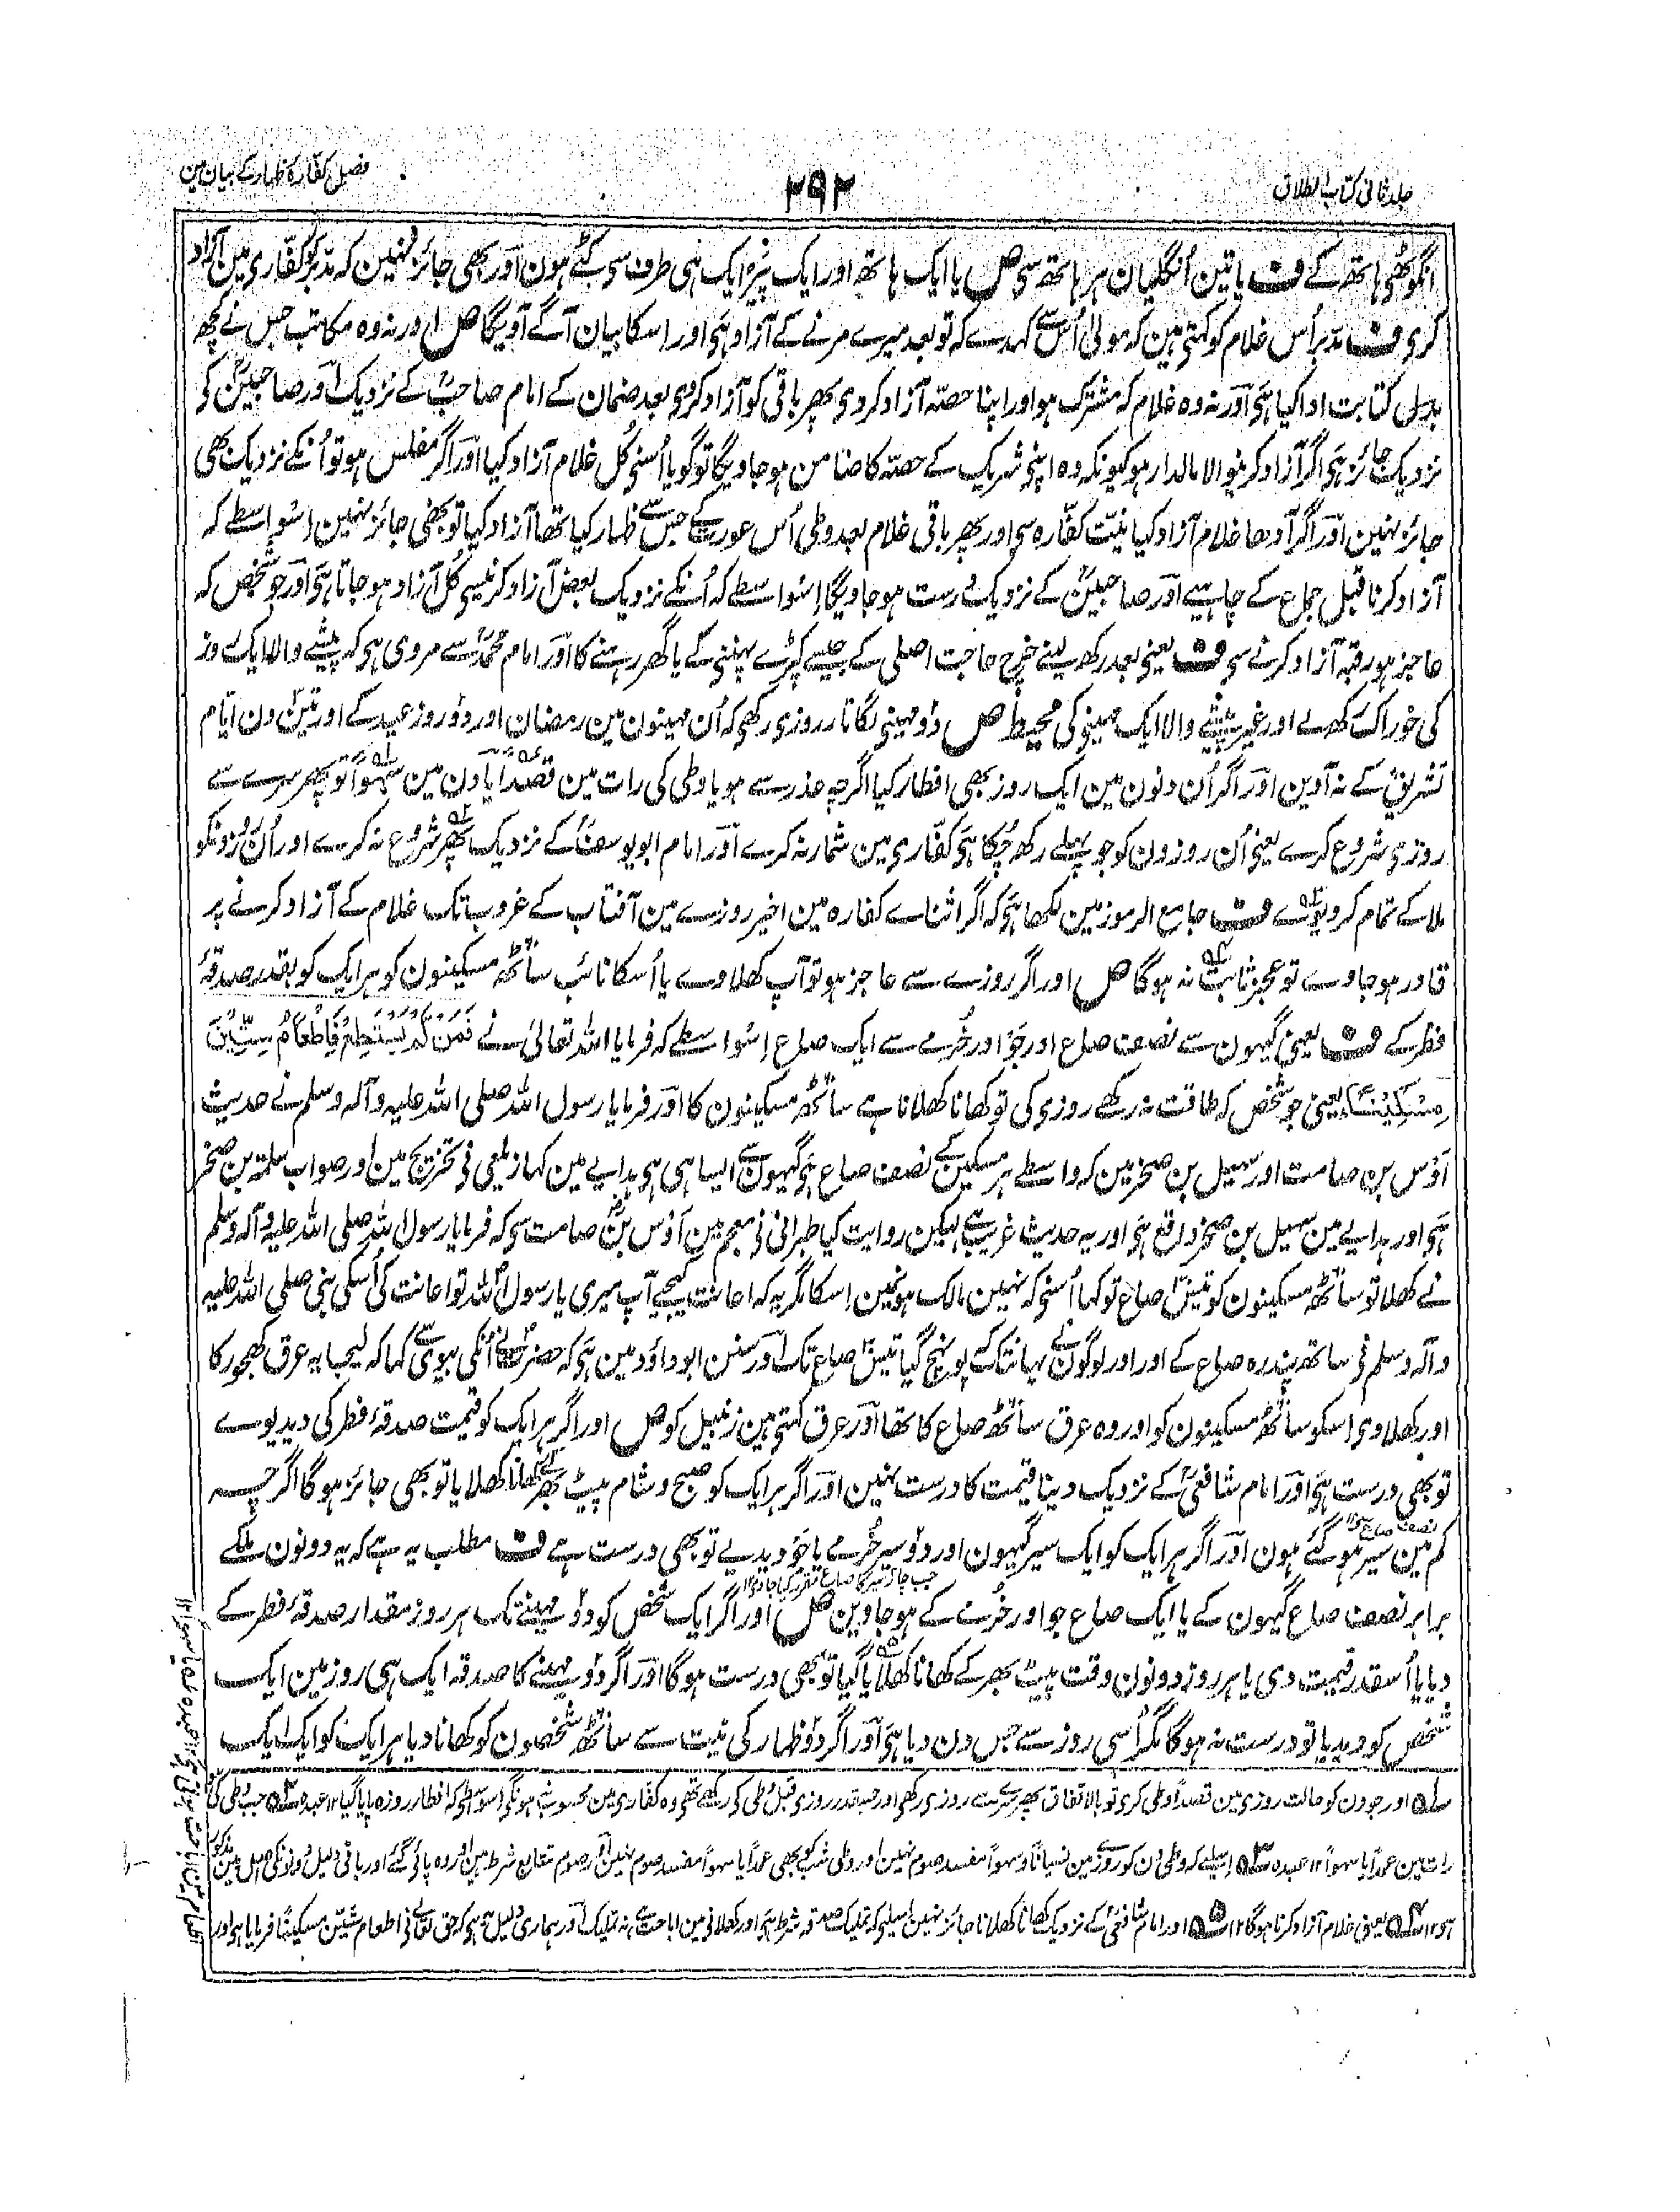 جلد ثانی کتاب الطلاق
۲۹۲
فصل کفارۂ ظہار کے بیان مین
انگوٹھی ہاتھ کے ف یا تین اُنگلیان ہر ہاتھ سی ص یا ایک ہاتھ اور ایک پیر ایک ہی طرف سی کٹے ہون اور بھی جائز نہین کہ مدبر کو کفّاری مین آزاد
کری ف مدبر اُس غلام کو کہتی ہین کہ مولیٰ اُس سے کہدے کہ تو بعد میرے مرنے کے آزاد ہی اور اسکا بیان آگے آویگا ص اور نہ وہ مکاتب جس نے کچھ
بدل کتابت ادا کیا ہی اور نہ وہ غلام کہ مشترک ہو اور اپنا حصّہ آزاد کردی پھر باقی کو آزاد کردی بعد ضمان کے امام صاحبؒ کے نزدیک اور صاحبینؒ کی
نزدیک جائز ہی اگر آزاد کرنیوالا مالدار ہو کیونکہ وہ اپنی شریک کے حصّہ کا ضامن ہوجاویگا تو گویا اُسنی کُل غلام آزاد کیا اور اگر مفلس ہو تو اُنکے نزدیک بھی
جائز نہین اور اگر آدھا غلام آزاد کیا بنیّت کفّارہ سی اور پھر باقی غلام بعد وطی اُس عورت کے جس سے ظہار کیا تھا آزاد کیا تو بھی جائز نہین اِسواسطے کہ
آزاد کرنا قبل جماع کے چاہیے اور صاحبینؒ کے نزدیک درست ہوجاویگا اِسواسطے کہ اُنکے نزدیک بعض آزاد کرنیسی کُل آزاد ہوجاتا ہی اور جو شخص کہ
عاجز ہو رقبہ آزاد کرنے سی ف یعنی بعد رکھ لینے خرچ حاجت اصلی کے جیسے کپڑے پہننے کے یا گھر رہنے کا اور امام محمدؒ سے مروی ہی کہ پیشے والا ایک روز
کی خوراک رکھ لے اور غیر پیشے والا ایک مہینے کی محیط ص دو مہینی لگاتار روزی رکھی کہ اُن مہینون مین رمضان اور دو روز عید کے اور تین دن ایّام
تشریق کے نہ آوین اور اگر اُن دنون مین ایک روز بھی افطار کیا اگرچہ عذر سے ہو یا وطی کی رات مین قصداً یا دن مین سہواً تو پھر سرے سے
روزی شروع کرے یعنی اُن روزون کو جو پہلے رکھ چُکا ہی کفّاری مین شمار نہ کرے اور امام ابویوسفؒ کے نزدیک پھر شروع نہ کرے اور اُن روزونکو
ملا کے تمام کردیوے ف جامع الرموز مین لکھا ہی کہ اگر اثنا ے کفارہ مین اخیر روزے مین آفتاب کے غروب تک غلام کے آزاد کرنے پر
قادر ہوجاوے تو عجز ثابت نہ ہوگا ص اور اگر روزے سے عاجز ہو تو آپ کھلاوے یا اُسکا نائب ساٹھ مسکینون کو ہر ایک کو بقدر صدقۂ
فطر کے ف یعنی گیہون سے نصف صاع اور جَو اور خُرمے سے ایک صاع اِسواسطے کہ فرمایا اللہ تعالیٰ نے فَمَن لَّمْ یَسْتَطِعْ فَاِطْعَامُ سِتِّیْنَ
مِسْکِیْنًا یعنی جو شخص کہ طاقت نہ رکھے روزی کی تو کھانا کھلانا ہے ساٹھ مسکینون کا اور فرمایا رسول اللہ صلی اللہ علیہ وآلہ وسلم نے حدیث
اَوس بن صامت اور سہیل بن صخر مین کہ واسطے ہر مسکین کے نصف صاع ہی گیہون سے ایسا ہی ہی ہدایے مین کہا زیلعی نی تخریج مین اور صواب سلمہ بن صخر
ہی اور ہدایے مین سہیل بن صخر واقع ہی اور یہ حدیث غریب ہے لیکن روایت کیا طبرانی نی معجم مین اَوس بن صامت سی کہ فرمایا رسول اللہ صلی اللہ علیہ وآلہ وسلم
نے کھلا تو ساٹھ مسکینون کو تیس صاع تو کہا اُسنی کہ نہین مالک ہون مین اِسکا مگر یہ کہ اعانت کیجیے آپ میری یا رسول اللہ تو اعانت کی اُسکی نبی صلی اللہ علیہ
وآلہ وسلم نی ساتھ پندرہ صاع کے اور اور لوگون نے یہانتک کہ پونہچ گیا تیس صاع تک اور سنن ابوداؤد مین ہی کہ حضرت نے اُنکی بیوی سے کہا کہ لیجا یہ عرق کھجور کا
اور کھلادی اسکو ساٹھ مسکینون کو اور وہ عرق ساٹھ صاع کا تھا اور عرق کہتی ہین زنبیل کو ص اور اگر ہر ایک کو قیمت صدقۂ فطر کی دیدیوے
تو بھی درست ہی اور امام شافعیؒ کے نزدیک دینا قیمت کا درست نہین اور اگر ہر ایک کو صبح و شام پیٹ بھر کے کھانا کھلایا تو بھی جائز ہوگا اگرچہ
کم مین سیر ہوگئے ہون اور اگر ہر ایک کو ایک سیر گیہون اور دو سیر خُرمے یا جَو دیدیے تو بھی درست ہے ف مطلب یہ ہے کہ یہ دونون ملکے
برابر نصف صاع گیہون کے یا ایک صاع جو اور خرمے کے ہوجاوین ص اور اگر ایک شخص کو دو مہینے تک ہر روز مقدار صدقۂ فطر کے
دیا یا اُسقدر قیمت دی یا ہر روز دونون وقت پیٹ بھر کے کھانا کھلایا گیا تو بھی درست ہوگا اور اگر دو مہینے کا صدقہ ایک ہی روز مین ایک
شخص کو دیدیا تو درست نہ ہوگا مگر اُسی روز سے جس دن دیا ہی اور اگر دو ظہار کی نیت سے ساٹھ شخصون کو کھانا دیا ہر ایک کو ایک ایک
اور جو دن کو حالت روزی مین قصداً وطی کری تو بالاتفاق پھر سرے سے روزی رکھی اور جسقدر روزی قبل وطی کی رکھے تھی وہ کفّاری مین محسوب نہونگی اسواسطے کہ افطار روزہ پایا گیا ۱۲ عبدہ جب وطی کی
رات مین عمداً یا سہواً ۱۲ عبدہ اسلیے کہ وطی دن کو روزے مین نسیاناً وسہواً مفسد صوم نہین اور وطی شب کو بھی عمداً یا سہواً مفسد صوم نہین اور صوم متتابع شرط ہین اور وہ پائی گئے اور باقی دلیل دونونکی اصل مین مذکور
ہی ۱۲ یعنی غلام آزاد کرنا ہوگا ۱۲ اور امام شافعیؒ کے نزدیک کھانا کھلانا جائز نہین اسلیے کہ تملیک صدقہ شرط ہی اور کھلانی مین اباحت ہے نہ تملیک اور ہماری دلیل یہ ہی کہ حق تعالےٰ نی اطعام ستین مسکیناً فرمایا ہی اور